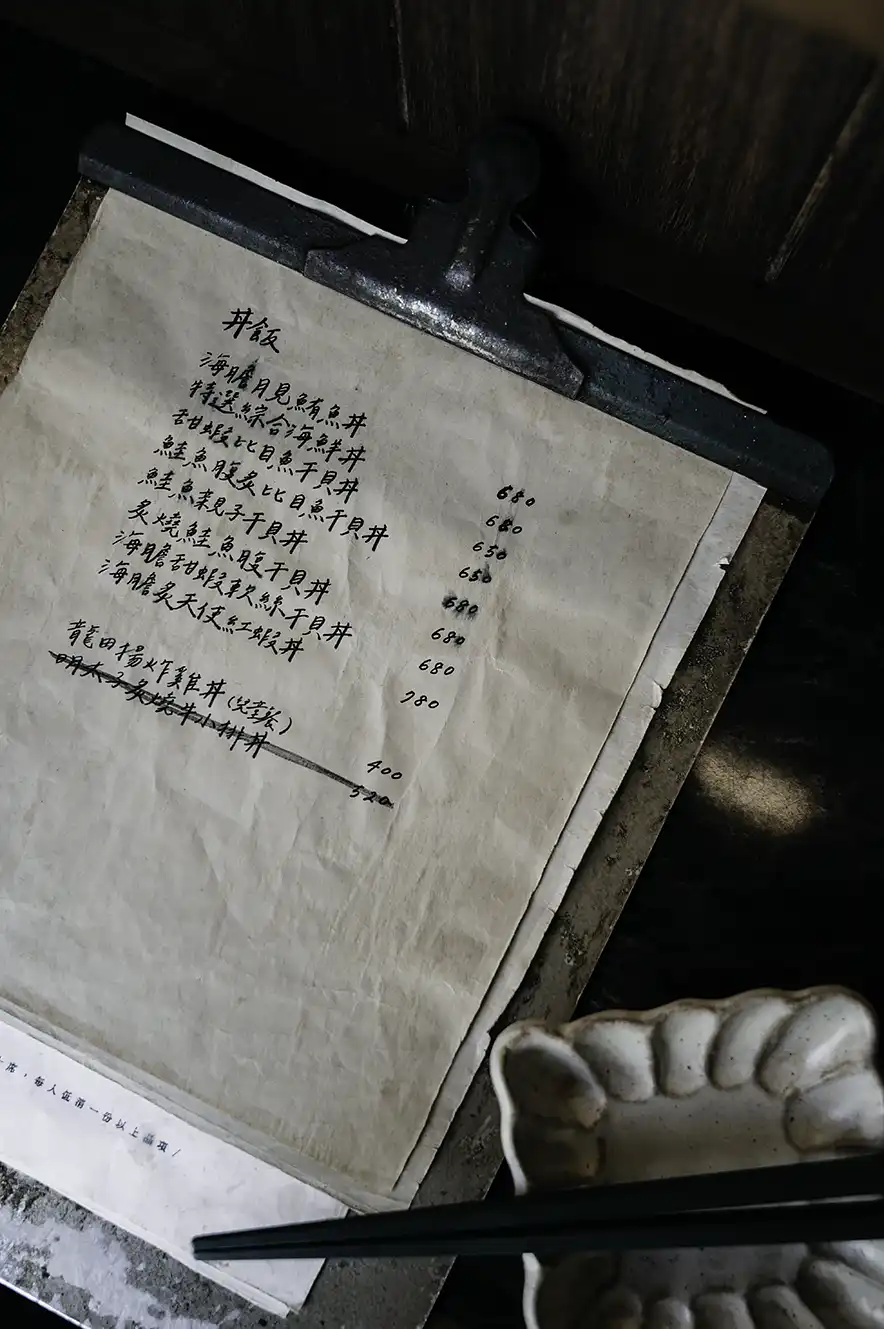 丼飯
海膽月見鮪魚丼 680
特選綜合海鮮丼 680
甜蝦比目魚干貝丼 650
鮭魚腹炙比目魚干貝丼 650
鮭魚親子干貝丼 680
炙燒鮭魚腹干貝丼 680
海膽甜蝦軟絲干貝丼 680
海膽炙天使紅蝦丼 780
龍田揚炸雞丼(兒童餐) 400
明太子炙燒牛小排丼 520
席,每人低消一份以上品項/